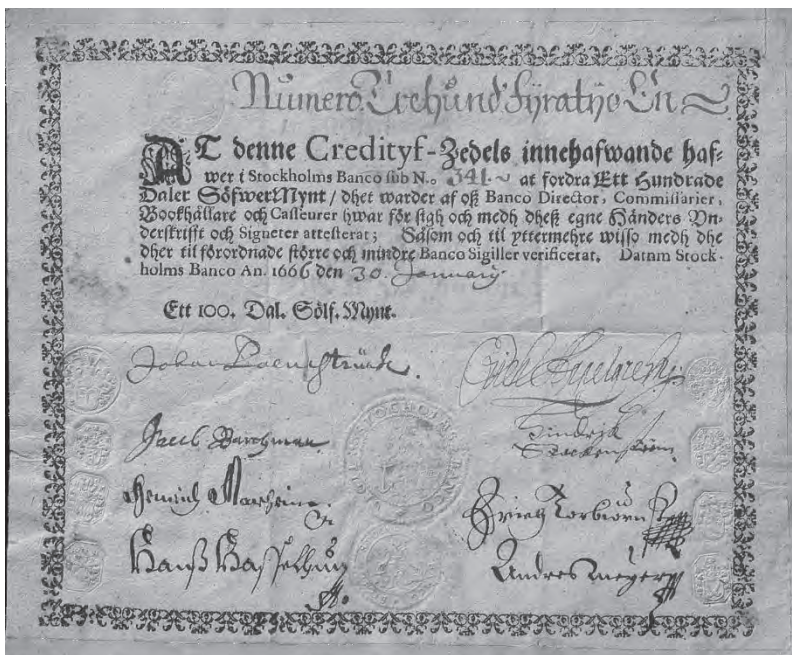 Numero. Trehund Fyratijo En
AT denne Credityf-Zedels innehafwande haf-
wer i Stockholms Banco sub N.o 341. at fordra Ett Hundrade
Daler SöfwerMynt / dhet warder af oß Banco Director, Commissarier,
Bookhållare och Casseurer hwar för sigh och medh dheß egne Händers Vn-
derskrifft och Signeter attesterat; Såsom och til yttermehre wisso medh dhe
dher til förordnade större och mindre Banco Sigiller verificerat. Datum Stock-
holms Banco An. 1666 den 30. January.
Ett 100. Dal. Sölf. Mynt.
Johan
Jacob Barchman
Hindrich
Hanß
Andres Meyer